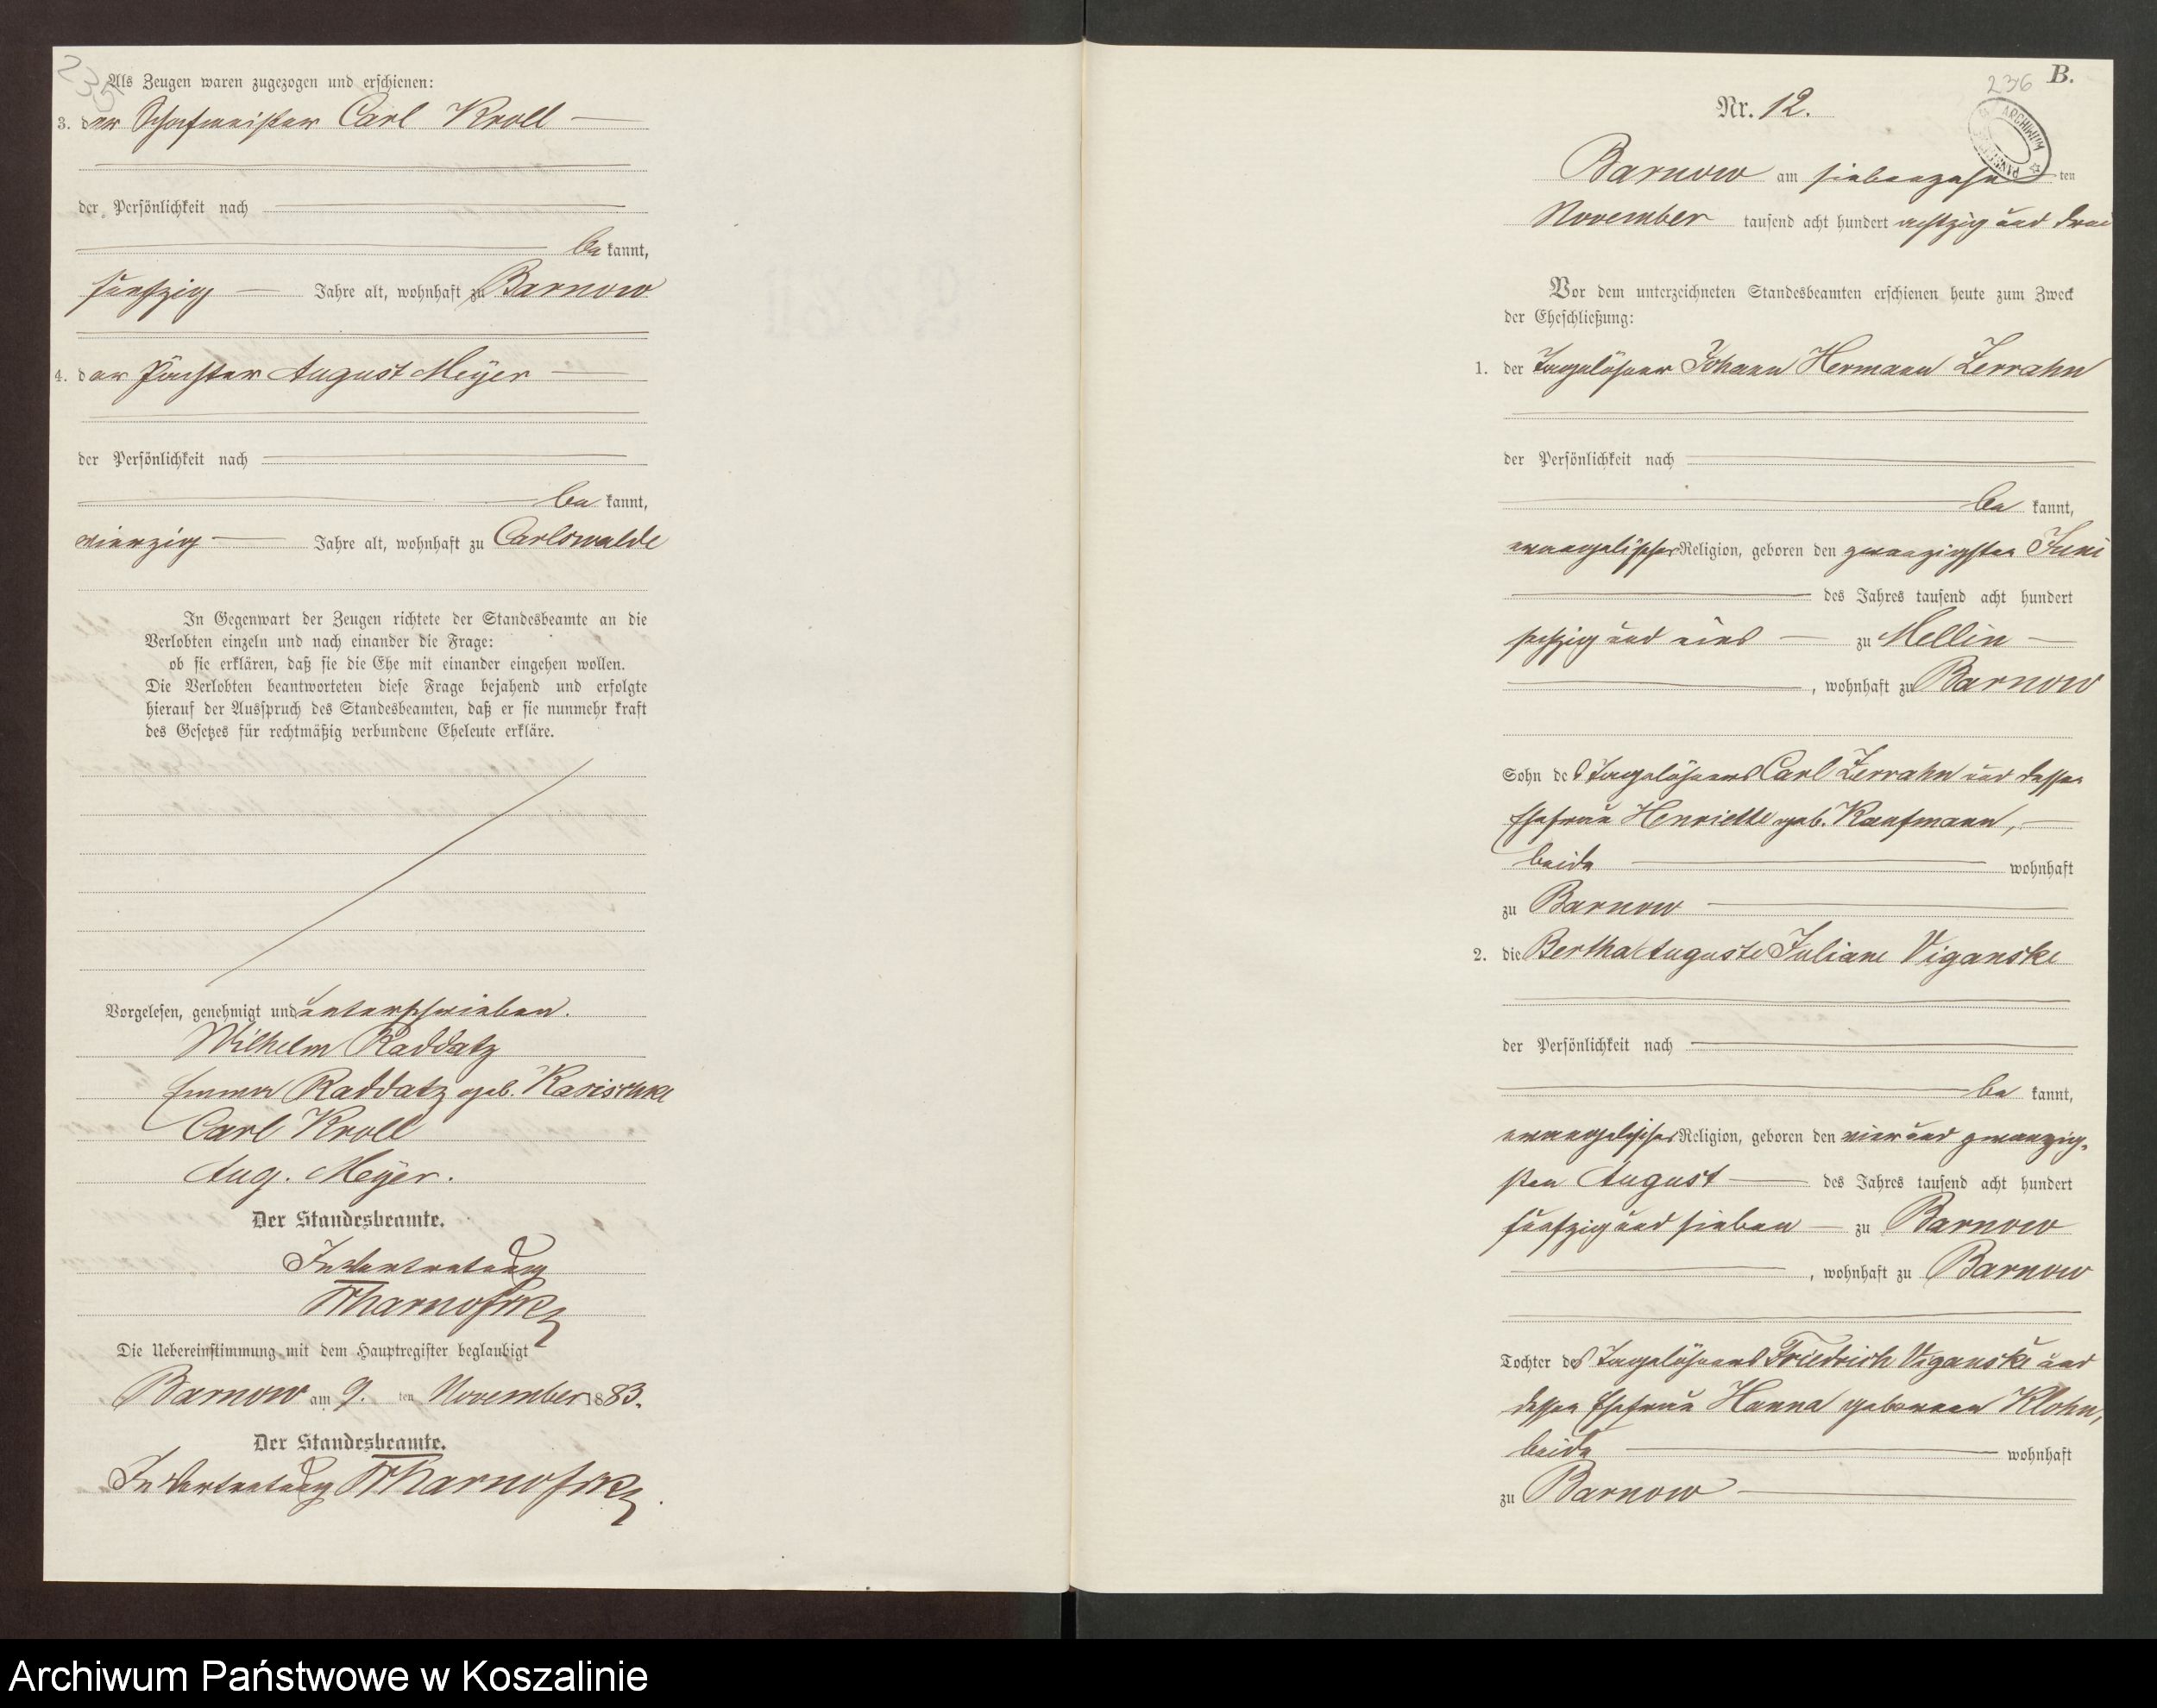 235
Als Zeugen waren zugezogen und erschienen:
3. der Schafmeister Carl Kroll
der Persönlichkeit nach
be kannt,
fünfzig Jahre alt, wohnhaft zu Barnow
4. der Pächter August Meÿer
der Persönlichkeit nach
be kannt,
vierzig Jahre alt, wohnhaft zu Carlswalde
In Gegenwart der Zeugen richtete der Standesbeamte an die
Verlobten einzeln und nach einander die Frage:
ob sie erklären, daß sie die Ehe mit einander eingehen wollen.
Die Verlobten beantworteten diese Frage bejahend und erfolgte
hierauf der Ausspruch des Standesbeamten, daß er sie nunmehr kraft
des Gesetzes für rechtmäßig verbundene Eheleute erkläre.
Vorgelesen, genehmigt und unterschrieben.
Wilhelm Raddatz
Emma Raddatz geb. Rasischke
Carl Kroll
Aug. Meÿer.
Der Standesbeamte.
In Vertretung
Die Uebereinstimmung mit dem Hauptregister beglaubigt
Barnow am 9. ten November 1883.
Der Standesbeamte.
In Vertretung
236
B.
ARCHIWUM
Nr. 12.
Barnow am siebenzehn ten
November tausend acht hundert achtzig und drei
Vor dem unterzeichneten Standesbeamten erschienen heute zum Zweck
der Eheschließung:
1. der Tagelöhner Johann Hermann Zerrahn
der Persönlichkeit nach
be kannt,
evangelischer Religion, geboren den zwanzigsten Juni
des Jahres tausend acht hundert
sechzig und eins zu Mellin
, wohnhaft zu Barnow
Sohn des Tagelöhners Carl Zerrahn und dessen
Ehefrau Henriette geb. Kaufmann,
beide wohnhaft
zu Barnow
2. die Bertha Auguste Juliane Viganske
der Persönlichkeit nach
be kannt,
evangelischer Religion, geboren den vier und zwanzig-
sten August des Jahres tausend acht hundert
fünfzig und sieben zu Barnow
, wohnhaft zu Barnow
Tochter des Tagelöhners Friedrich Viganske und
dessen Ehefrau Hanna geborenen Klohn,
beide wohnhaft
zu Barnow
Archiwum Państwowe w Koszalinie